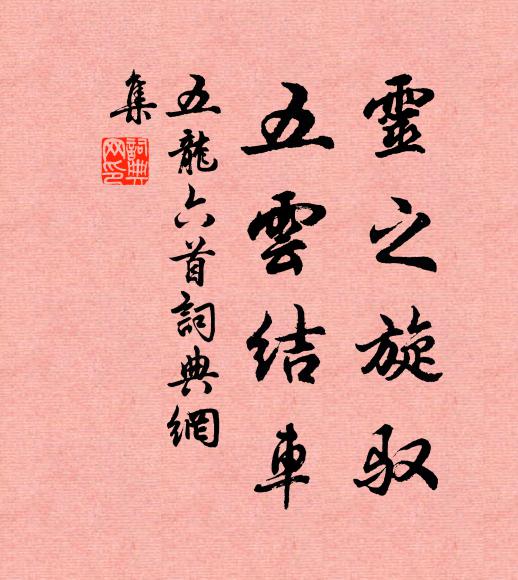 靈之旋馭
五雲結車
五龍六首詞典網
集
詞典
网印